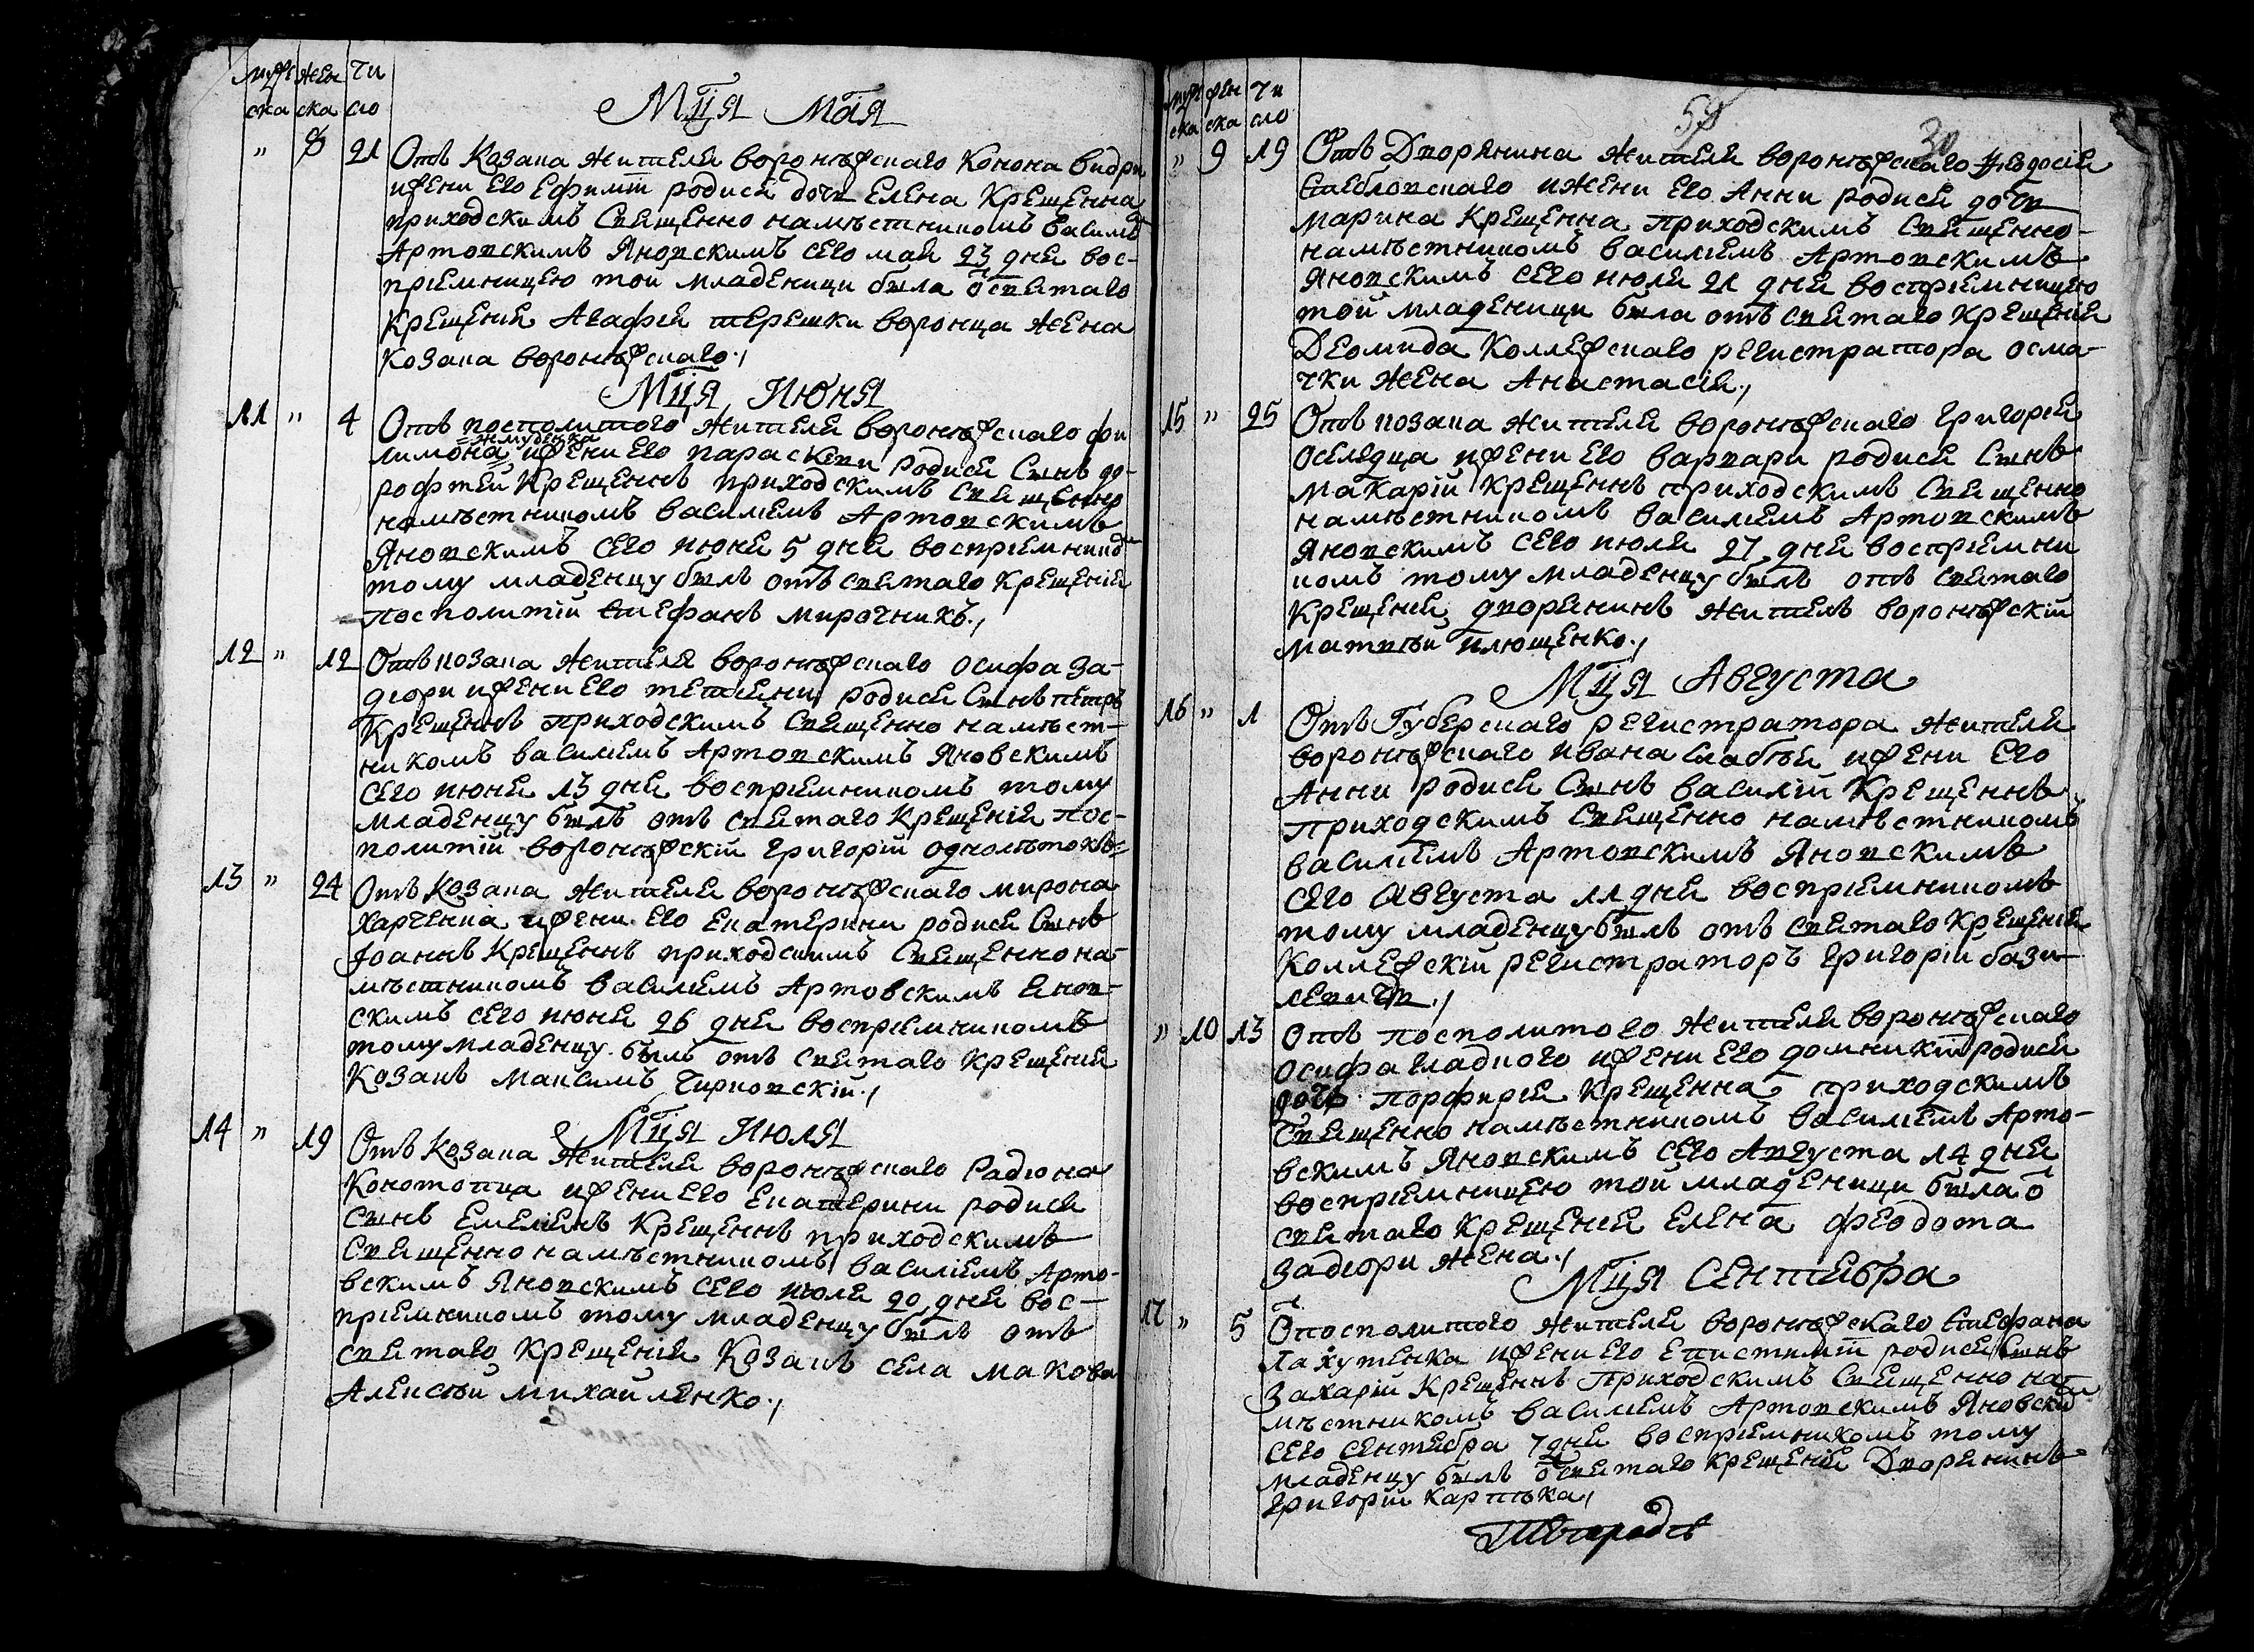 мужеска женска число
Мця Мая
" 8 21 Отъ Козака жителя воронѣжскаго Конона Видри
ижени его Ефиміи родися дочь Елена Крещенна
приходскимъ Священно намѣстникомъ Василіемъ
Артовскимъ Яновскимъ сего мая 23 дня вос-
пріемницею той младеници была ѿ святаго
Крещенія Агафія терешки воронца жена
Козака воронѣжскаго./
Мця Июня
11 " 4 Отъ посполитого жителя воронѣжскаго фи
лимона = жмуденка = ижени его параскеви родися Сынъ до-
рофтей Крещеннъ приходскимъ Священно
намѣстникомъ василіемъ Артовскимъ
Яновскимъ сего июня 5 дня воспріемником
тому младенцу былъ отъ святаго Крещенія
посполитій Стефанъ Мирочникъ./
12 " 12 Отъ козака жителя воронѣжскаго осифа за-
деори ижени его тетяни родися Сынъ петръ
Крещеннъ приходскимъ Священно намѣст-
никомъ василіемъ Артовскимъ Яновскимъ
сего июня 13 дня воспріемникомъ тому
младенцу былъ отъ святаго Крещенія пос-
политій воронѣжскій григорій однолѣтокъ=
13 " 24 Отъ Козака жителя воронѣжскаго мирона
харченка ижени его екатерини родися Сынъ
Іоаннъ Крещеннъ приходскимъ Священно на-
мѣстникомъ василіемъ Артовскимъ янов-
скимъ сего июня 26 дня воспріемникомъ
тому младенцу былъ отъ святаго Крещенія
Козакъ Максимъ Чирковскій./
Мця Июля
14 " 19 Отъ Козака жителя воронѣжскаго Радіона
Конотопца ижени его екатерини родися
сынъ емеліянъ Крещеннъ приходскимъ
Священно намѣстникомъ василіемъ Арто-
вскимъ Яновскимъ сего июля 20 дня вос-
пріемникомъ тому младенцу былъ отъ
святаго Крещенія Козакъ села макова
Алексѣй михайленко./
мужеска женска число
30
" 9 19 Отъ Дворянина жителя воронѣжскаго Феодосія
Стебловскаго ижени его Анни родися дочь
марина Крещенна приходскимъ Священно-
намѣстникомъ василіемъ Артовскимъ
Яновскимъ сего июля 21 дня воспріемницею
той младеници была отъ святаго Крещенія
Деомида Коллежскаго регистратора осма-
чки жена Анастасія./
15 " 25 Отъ козака жителя воронѣжскаго григорія
оселядца ижени его варвари родися Сынъ
Макарій Крещеннъ приходскимъ Священно
намѣстникомъ василіемъ Артовскимъ
Яновскимъ сего июля 27 дня воспріемни
комъ тому младенцу былъ отъ святаго
Крещенія дворянинъ житель воронѣжскій
матвѣй илющенко./
Мця Августа
16 " 1 Отъ Губерскаго регистратора жителя
воронѣжскаго ивана слабѣя ижени его
Анни родися Сынъ василій Крещеннъ
приходскимъ Священно намѣстникомъ
василіемъ Артовскимъ Яновскимъ
сего Августа 11 дня воспріемникомъ
тому младенцу былъ отъ святаго Крещенія
коллежскій регистраторъ григорій бази-
левичъ./
" 10 13 Отъ посполитого жителя воронѣжскаго
осифа гладкого ижени его домникіи родися
дочь порфирія Крещенна приходскимъ
Священно намѣстникомъ василіемъ Арто-
вскимъ Яновскимъ сего Августа 14 дня
воспріемницею той младеници была ѿ
святаго Крещенія елена феодота
задеори жена./
Мця Сентября
17 " 5 Ѿ посполитого жителя воронѣжскаго Стефана
Лахутенка ижени его епистиміи родися Сынъ
Захарій Крещеннъ приходскимъ Священно на-
мѣстникомъ василіемъ Артовскимъ Яновским
сего сентября 7 дня воспріемникомъ тому
младенцу былъ ѿ святаго Крещенія Дворянинъ
григорій Карпѣка/